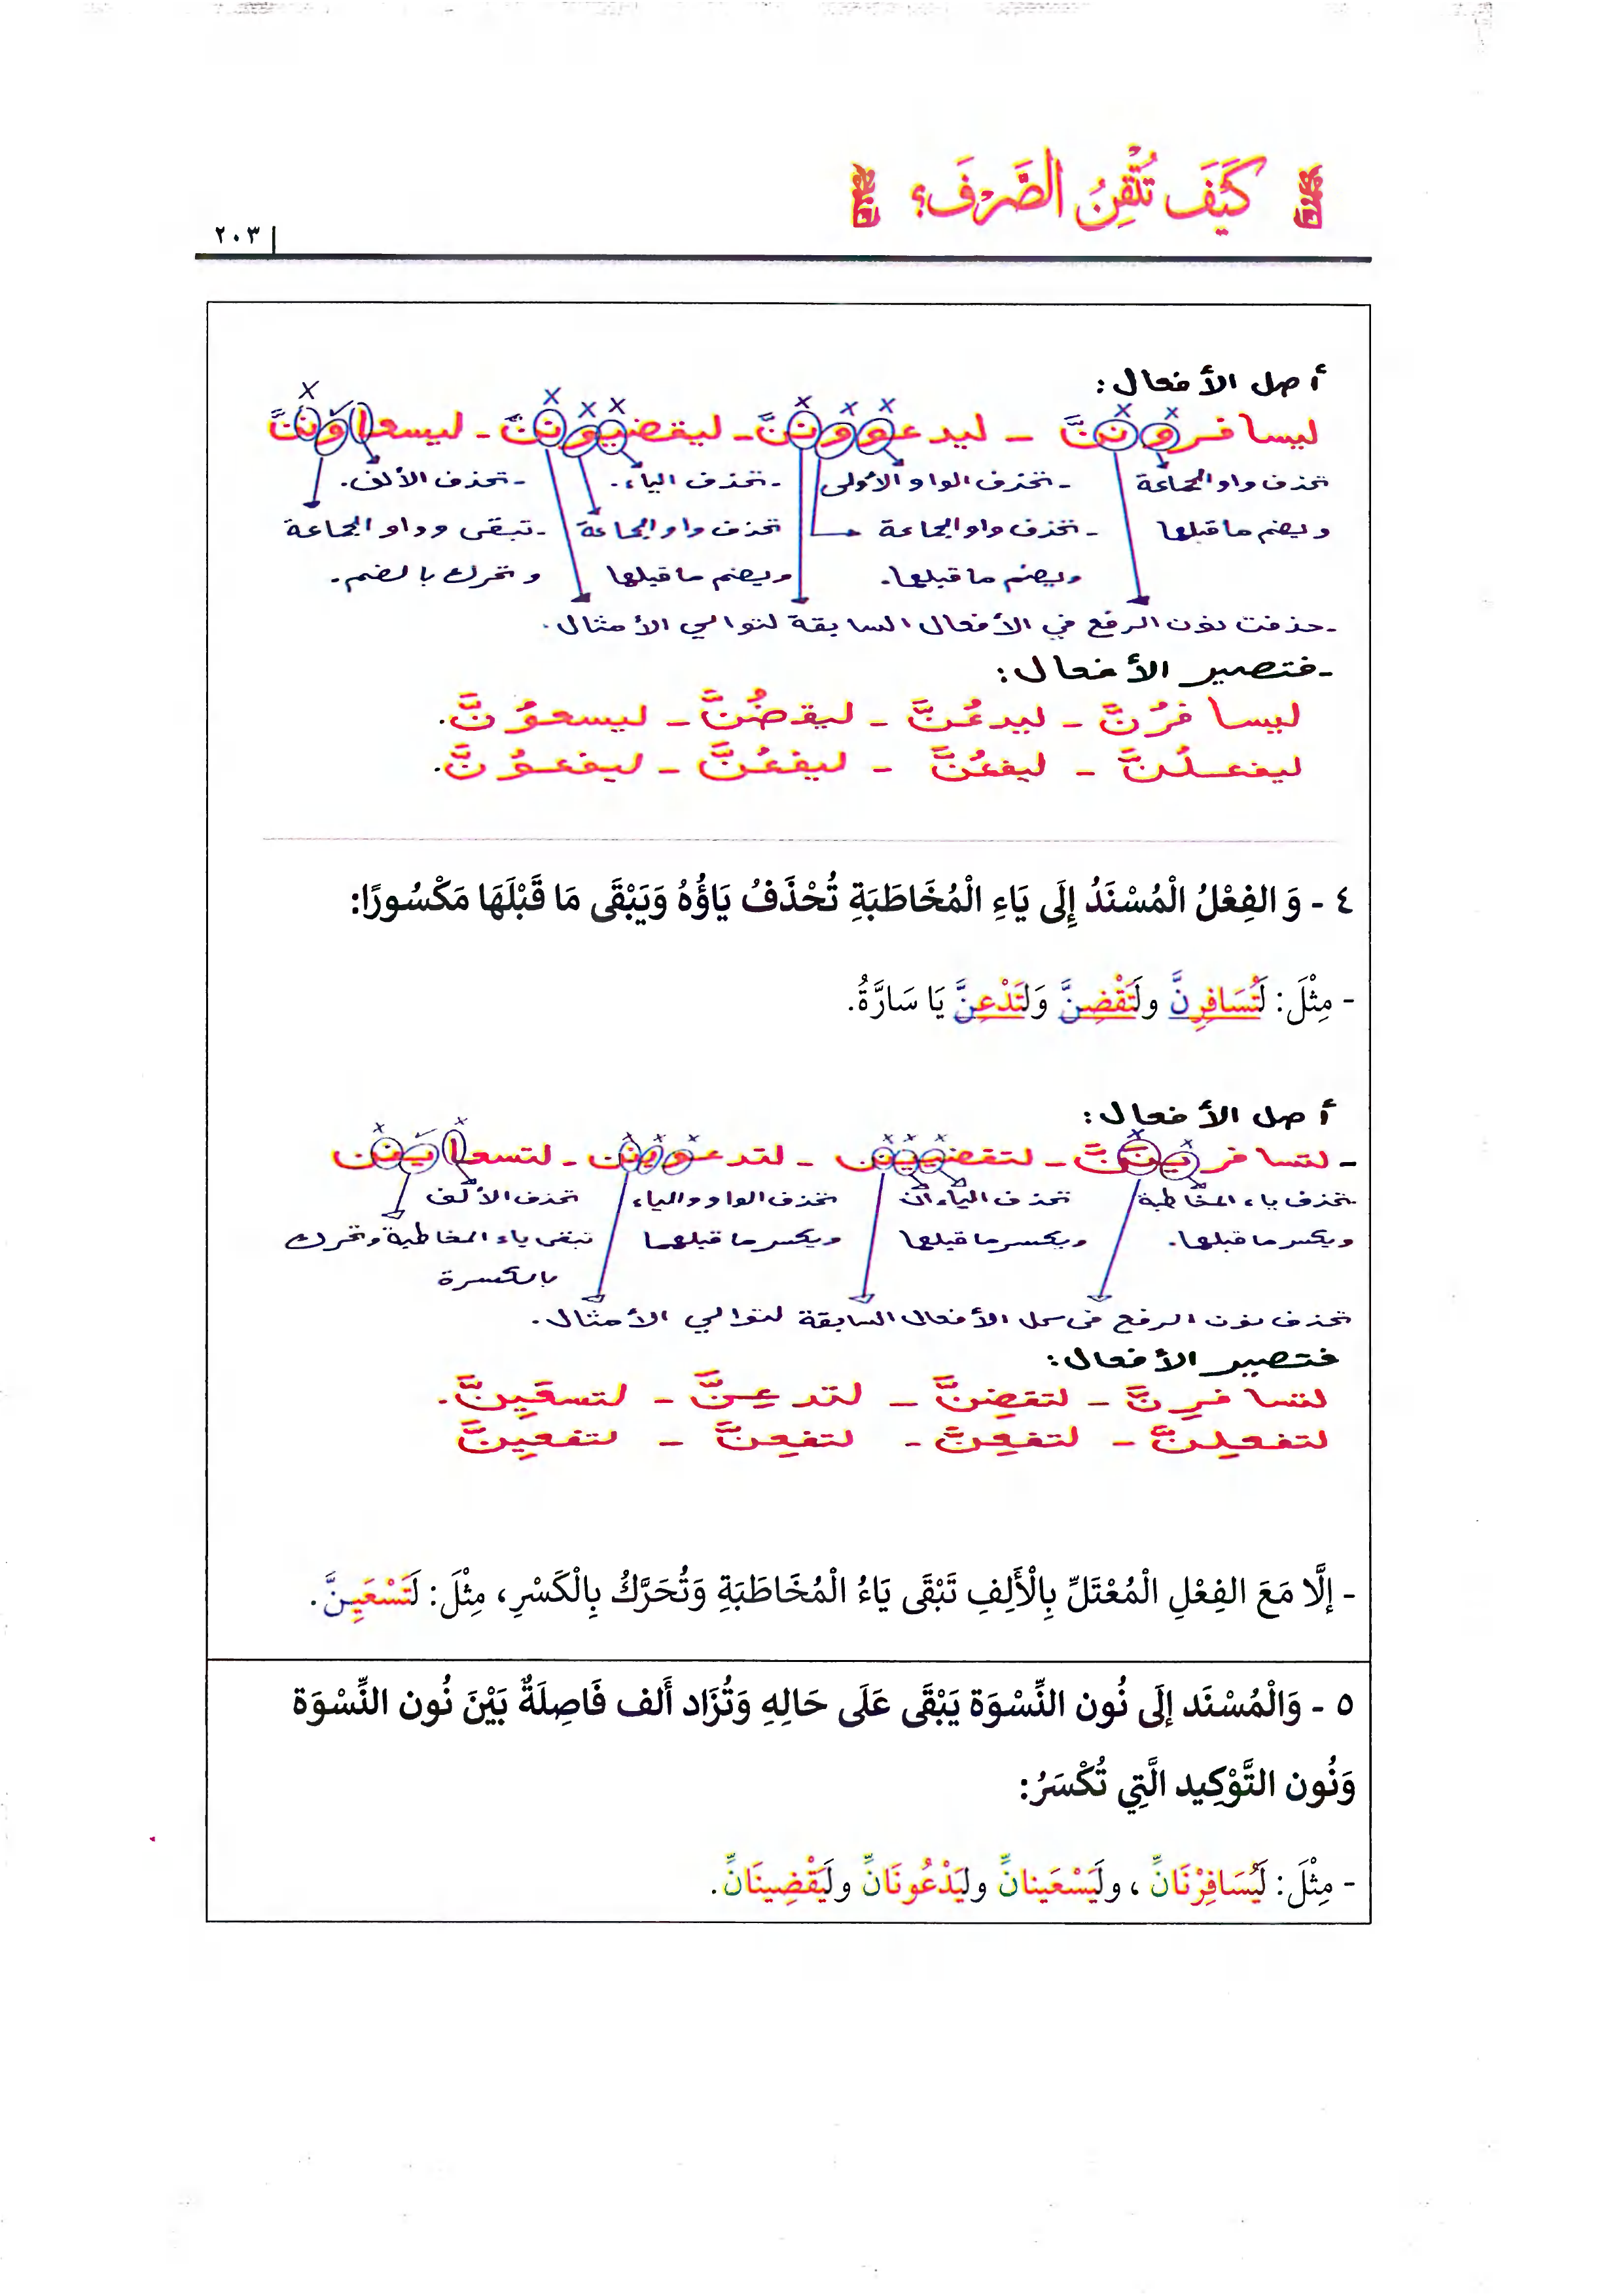 كَيْفَ تُتْقِنُ الصَّرْفَ؟
٢٠٣
أصل الأفعال:
ليسافرونَنَّ - ليدعوونَنَّ - ليقضيونَنَّ - ليسعاونَنَّ
تحذف واو الجماعة - تحذف الواو الأولى - تحذف الياء. - تحذف الألف.
ويضم ما قبلها - تحذف واو الجماعة تحذف واو الجماعة - تبقى وواو الجماعة
ويضم ما قبلها. ويضم ما قبلها وتحرك بالضم.
- حذفت نون الرفع في الأفعال السابقة لتوالي الأمثال.
- فتصير الأفعال:
ليسافرُنَّ - ليدعُنَّ - ليقضُنَّ - ليسعوُنَّ.
ليفعلُنَّ - ليفعُنَّ - ليفعُنَّ - ليفعوُنَّ.
٤ - وَ الفِعْلُ الْمُسْنَدُ إِلَى يَاءِ الْمُخَاطَبَةِ تُحْذَفُ يَاؤُهُ وَيَبْقَى مَا قَبْلَهَا مَكْسُورًا:
- مِثْلَ: لَتُسَافِرِنَّ ولَتَقْضِنَّ وَلَتَدْعِنَّ يَا سَارَّةُ.
أصل الأفعال:
- لتسافرينَنَّ - لتقضيينن - لتدعوينن - لتسعاينن
تحذف ياء المخاطبة تحذف الياءان تحذف الواو والياء تحذف الألف
ويكسر ما قبلها. ويكسر ما قبلها ويكسر ما قبلهما تبقى ياء المخاطبة وتحرك
بالكسرة
تحذف نون الرفع في كل الأفعال السابقة لتوالي الأمثال.
فتصير الأفعال:
لتسافرِنَّ - لتقضِنَّ - لتدعِنَّ - لتسعَيِنَّ.
لتفعلِنَّ - لتفعِنَّ - لتفعِنَّ - لتفعيِنَّ
- إلَّا مَعَ الفِعْلِ الْمُعْتَلِّ بِالْأَلِفِ تَبْقَى يَاءُ الْمُخَاطَبَةِ وَتُحَرَّكُ بِالْكَسْرِ، مِثْلَ: لَتَسْعَيِنَّ.
٥ - وَالْمُسْنَد إلَى نُون النِّسْوَة يَبْقَى عَلَى حَالِهِ وَتُزَاد أَلف فَاصِلَةٌ بَيْنَ نُون النِّسْوَة
وَنُون التَّوْكِيد الَّتِي تُكْسَرُ:
- مِثْلَ: لَيُسَافِرْنَانِّ ، ولَيَسْعَينانِّ وليَدْعُونَانِّ ولَيَقْضِينَانِّ.